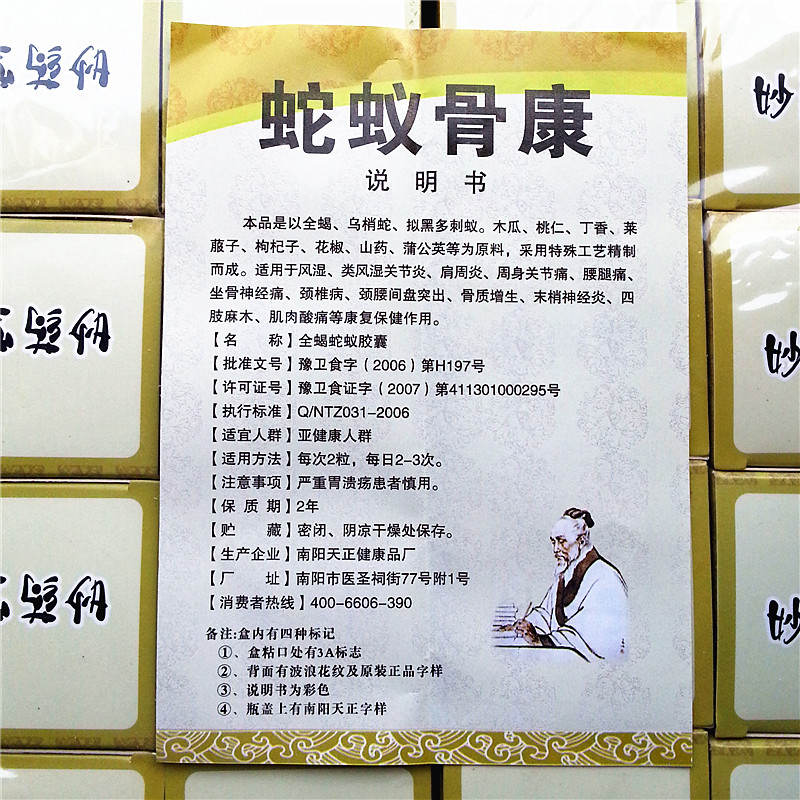 蛇蚁骨康
说明书
本品是以全蝎、乌梢蛇、拟黑多刺蚁。木瓜、桃仁、丁香、莱
菔子、枸杞子、花椒、山药、蒲公英等为原料，采用特殊工艺精制
而成。适用于风湿、类风湿关节炎、肩周炎、周身关节痛、腰腿痛、
坐骨神经痛、颈椎病、颈腰间盘突出、骨质增生、末梢神经炎、四
肢麻木、肌肉酸痛等康复保健作用。
【名　　称】全蝎蛇蚁胶囊
【批准文号】豫卫食字（2006）第H197号
【许可证号】豫卫食证字（2007）第411301000295号
【执行标准】Q/NTZ031-2006
【适宜人群】亚健康人群
【适用方法】每次2粒，每日2-3次。
【注意事项】严重胃溃疡患者慎用。
【保 质 期】2年
【贮　　藏】密闭、阴凉干燥处保存。
【生产企业】南阳天正健康品厂
【厂　　址】南阳市医圣祠街77号附1号
【消费者热线】400-6606-390
备注:盒内有四种标记
①、盒粘口处有3A标志
②、背面有波浪花纹及原装正品字样
③、说明书为彩色
④、瓶盖上有南阳天正字样